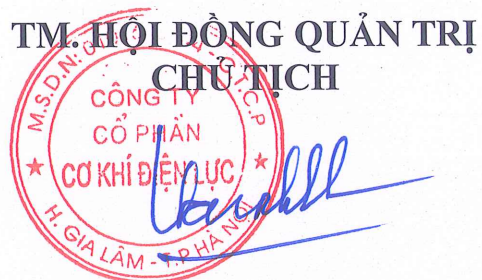 TM. HỘI ĐỒNG QUẢN TRỊ
CHỦ TỊCH
M.S.D.N:
C.T.C.P
CÔNG TY
CỔ PHẦN
CƠ KHÍ ĐIỆN LỰC
H. GIA LÂM - T.P HÀ NỘI